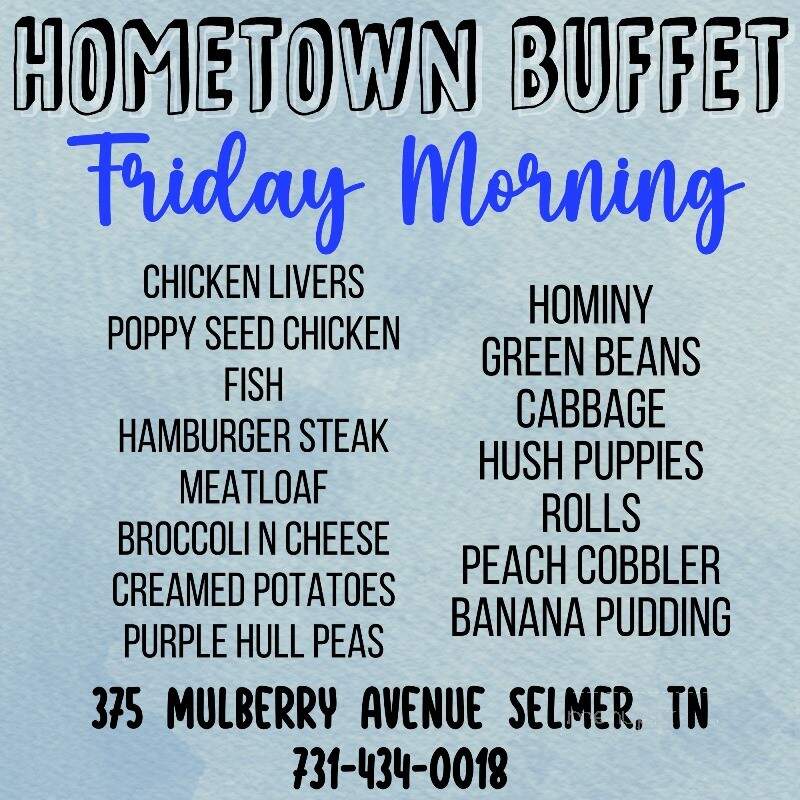 HOMETOWN BUFFET
Friday Morning
CHICKEN LIVERS
POPPY SEED CHICKEN
FISH
HAMBURGER STEAK
MEATLOAF
BROCCOLI N CHEESE
CREAMED POTATOES
PURPLE HULL PEAS
HOMINY
GREEN BEANS
CABBAGE
HUSH PUPPIES
ROLLS
PEACH COBBLER
BANANA PUDDING
375 MULBERRY AVENUE SELMER, TN
731-434-0018